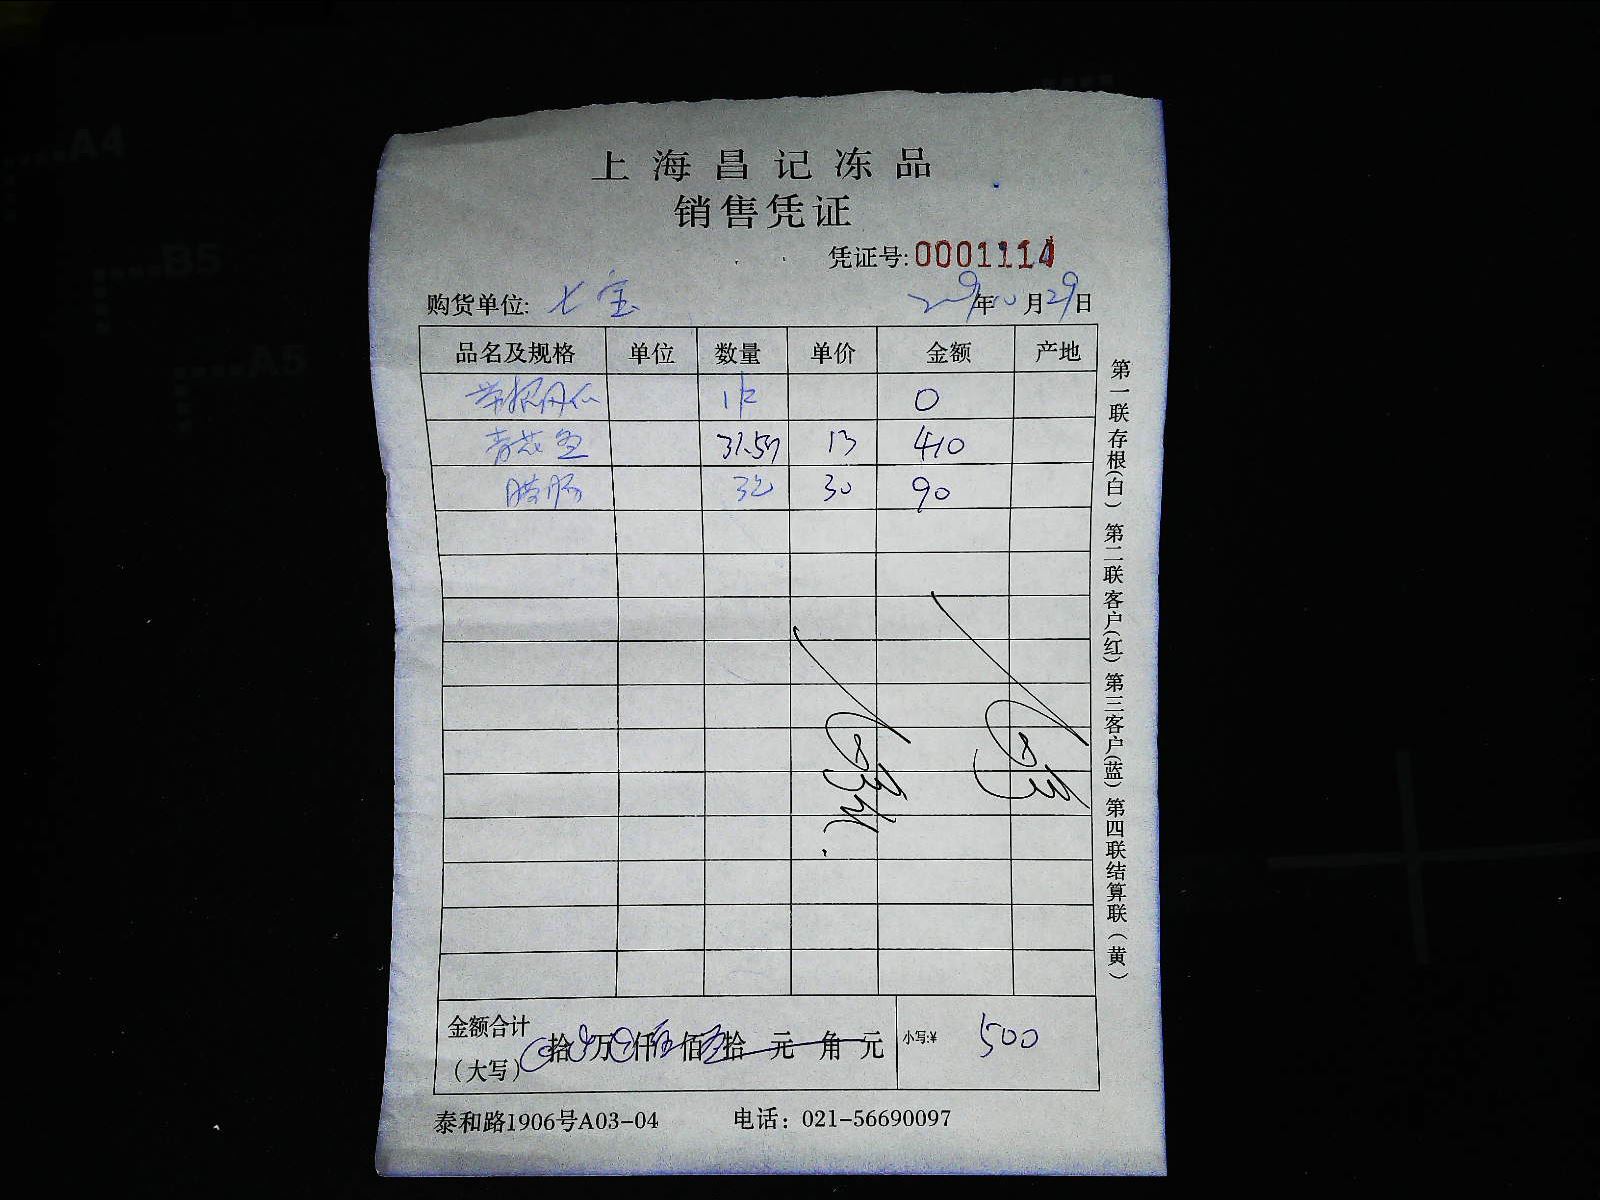 上海昌记冻品
销售凭证
凭证号:0001114
购货单位: 七宝 年10月29日
品名及规格 单位 数量 单价 金额 产地
0
青花鱼 31.5斤 13 410
腊肠 3包 30 90
金额合计
(大写) 拾 万 仟 伍佰 拾 元 角 元 小写:¥ 500
泰和路1906号A03-04 电话：021-56690097
第一联存根(白) 第二联客户(红) 第三客户(蓝) 第四联结算联(黄)
A4
B5
A5